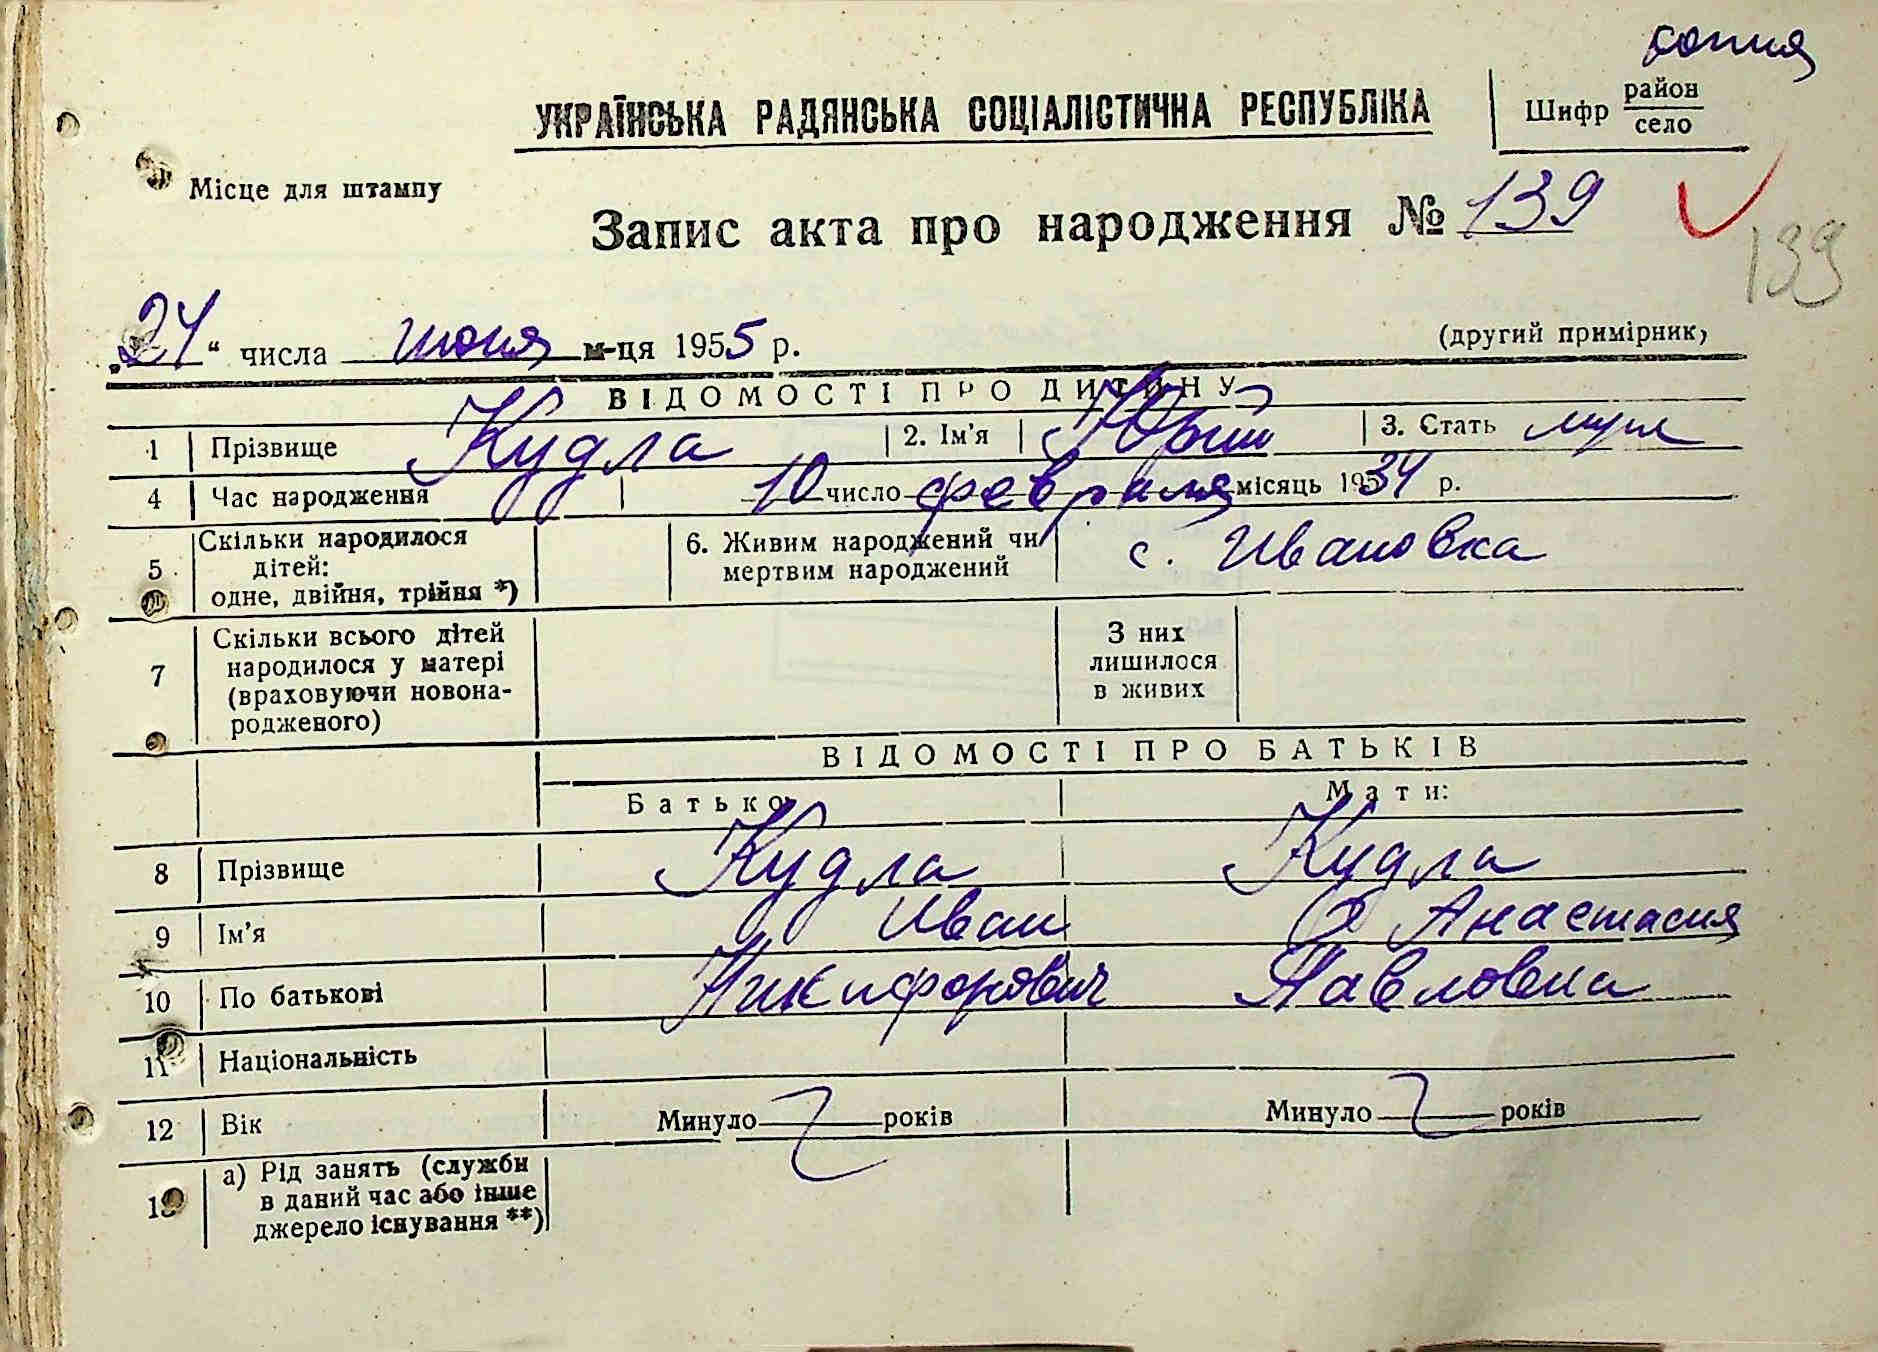 копия
УКРАЇНСЬКА РАДЯНСЬКА СОЦІАЛІСТИЧНА РЕСПУБЛІКА
Шифр район
село
Місце для штампу
Запис акта про народження № 139
139
„24“ числа июня м-ця 1955 р.
(другий примірник)
ВІДОМОСТІ ПРО ДИТИНУ
1 Прізвище Кудла 2. Ім'я Юрий 3. Стать муж
4 Час народження 10 число февраля місяць 1934 р.
5 Скільки народилося дітей: одне, двійня, трійня *) 6. Живим народжений чи мертвим народжений с. Ивановка
7 Скільки всього дітей народилося у матері (враховуючи новонародженого) З них лишилося в живих
ВІДОМОСТІ ПРО БАТЬКІВ
Батько Мати:
8 Прізвище Кудла Кудла
9 Ім'я Иван Анастасия
10 По батькові Никифорович Павловна
11 Національність
12 Вік Минуло років Минуло років
13 а) Рід занять (служби в даний час або інше джерело існування **)